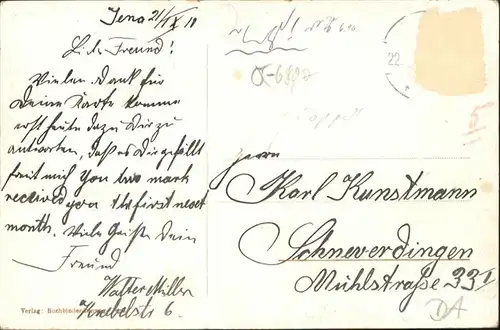 Jena 21/IX 10
Lieber Freund!
Vielen Dank für
Deine Karte komme
erst heute dazu Dir zu
antworten, daß es Dir gefällt
freut mich You two mark
received you the first next
month. Viele Grüße Dein
Freund
Walter Müller
Knebelstr 6.
Verlag: Buchbinder
22
Herrn
Karl Kunstmann
Schneverdingen
Mühlstraße 33 I
DA
5